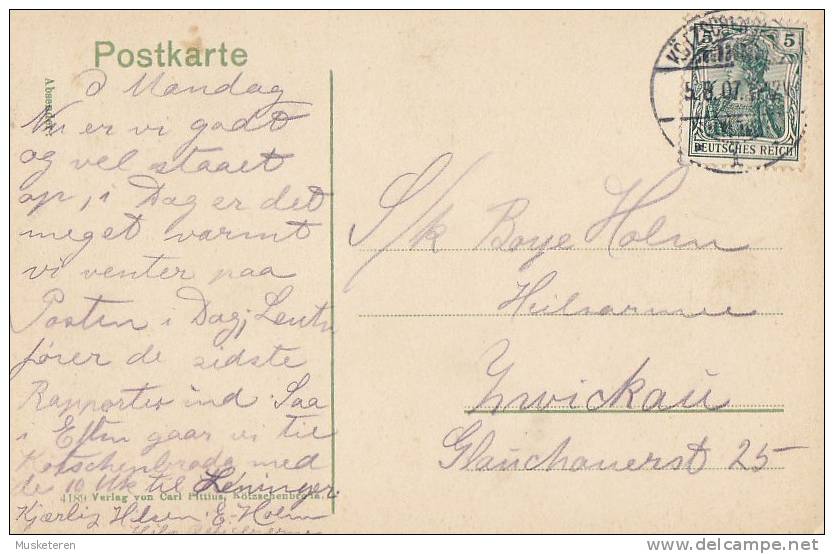 Postkarte
Absender:
Mandag
Nu er vi godt
og vel staaet
op, i Dag er det
meget varmt
vi venter paa
Posten i Dag, Leutn
fører de sidste
Rapporter ind. Saa
i Eftm gaar vi til
Kötschenbroda med
de 10 Mk til Leninger.
Kjærlig Hilsen E. Holm
4189 Verlag von Carl Pittius, Kötzschenbroda.
5
5
DEUTSCHES REICH
5.8.07.
S/k Boye Holm
Heilsarmee
Zwickau
Glauchauerst 25
Musketeren
delcampe.net